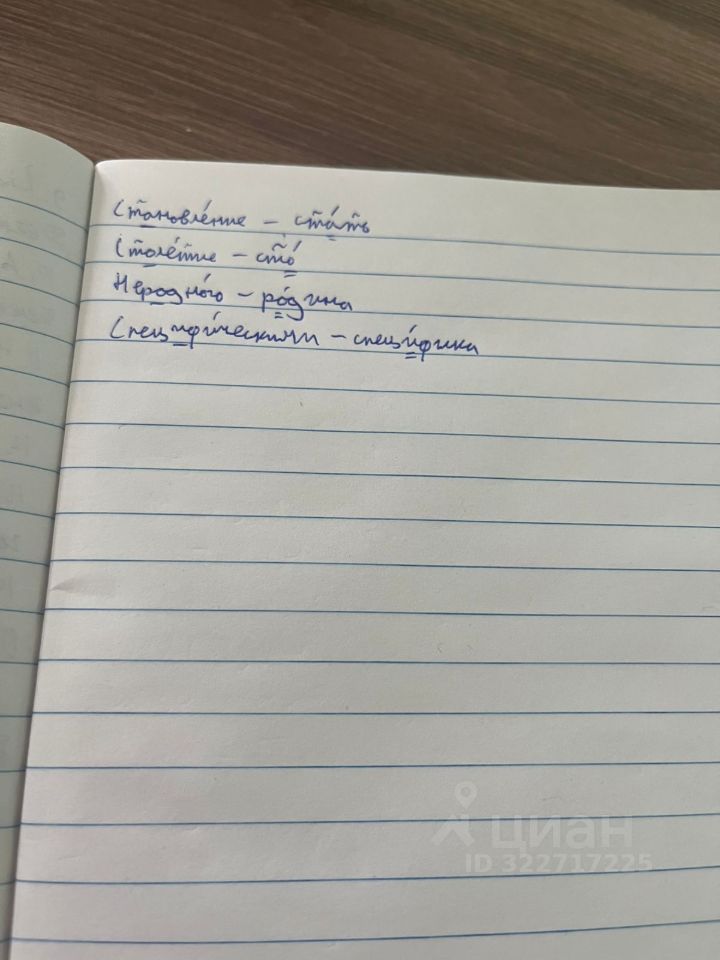 Становле́ние – ста́ть
Столе́тие – сто́
Неродно́го – ро́дина
Специфи́ческими – специ́фика
циан
ID 322717225